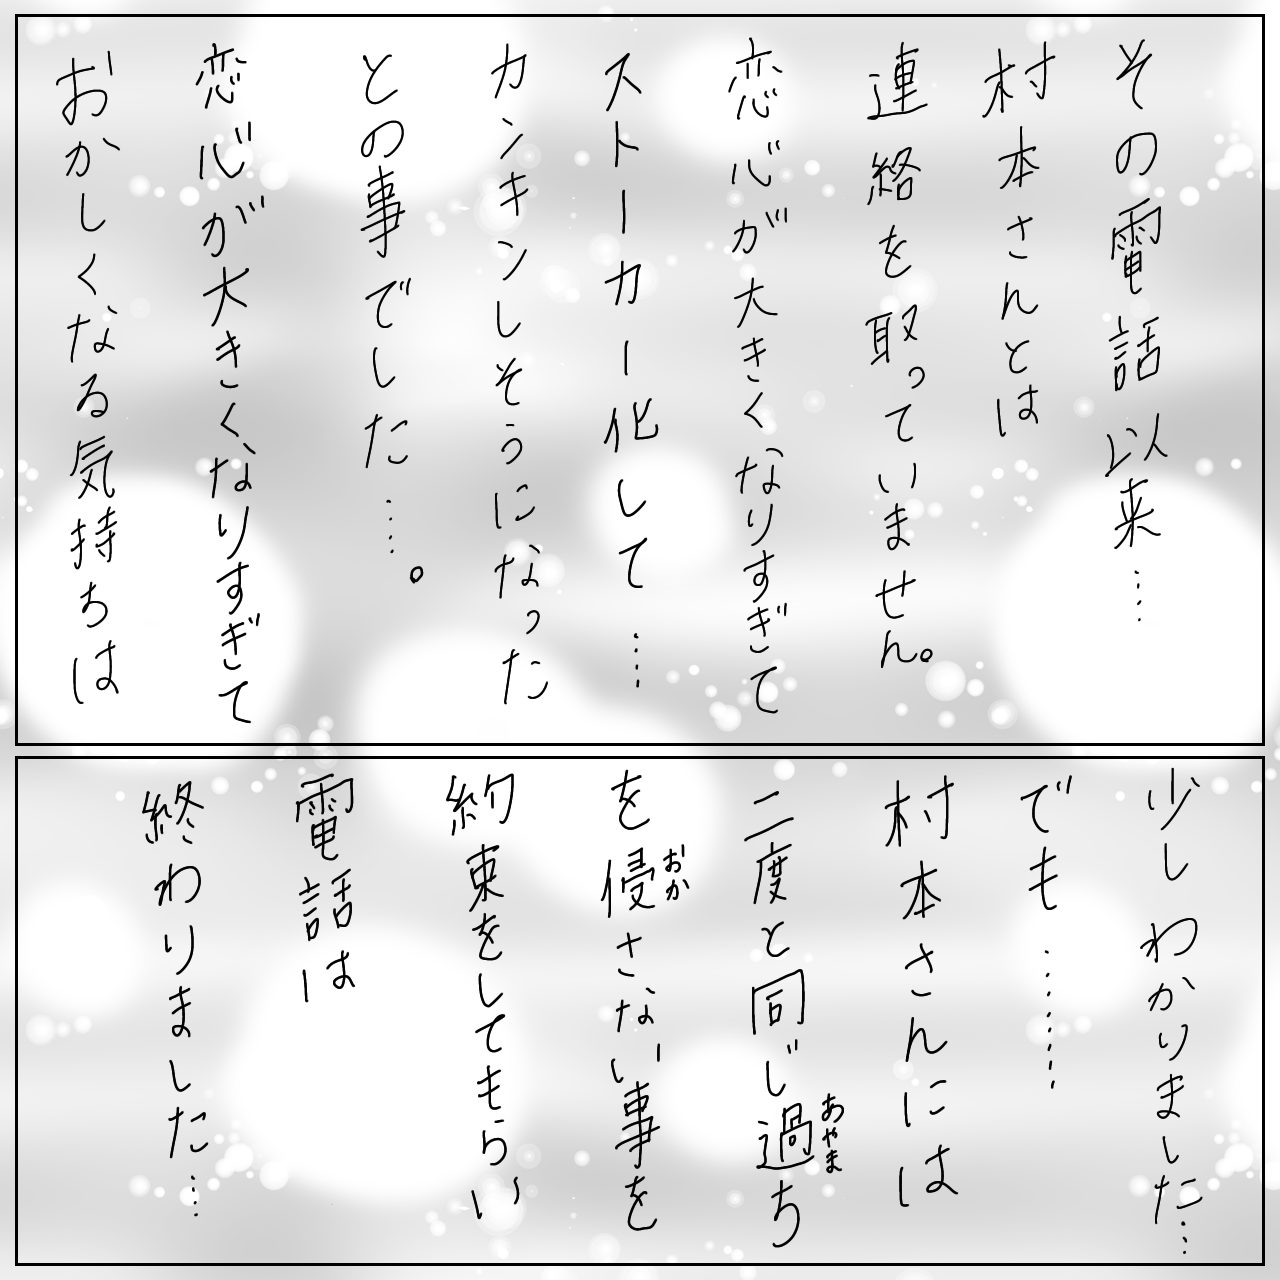 その電話以来…
村本さんとは
連絡を取っていません。
恋心が大きくなりすぎて
ストーカー化して…
カンキンしそうになった
との事でした……。
恋心が大きくなりすぎて
おかしくなる気持ちは
少しわかりました…
でも………
村本さんには
二度と同じ過ち
あやま
を侵さない事を
おか
約束をしてもらい
電話は
終わりました…